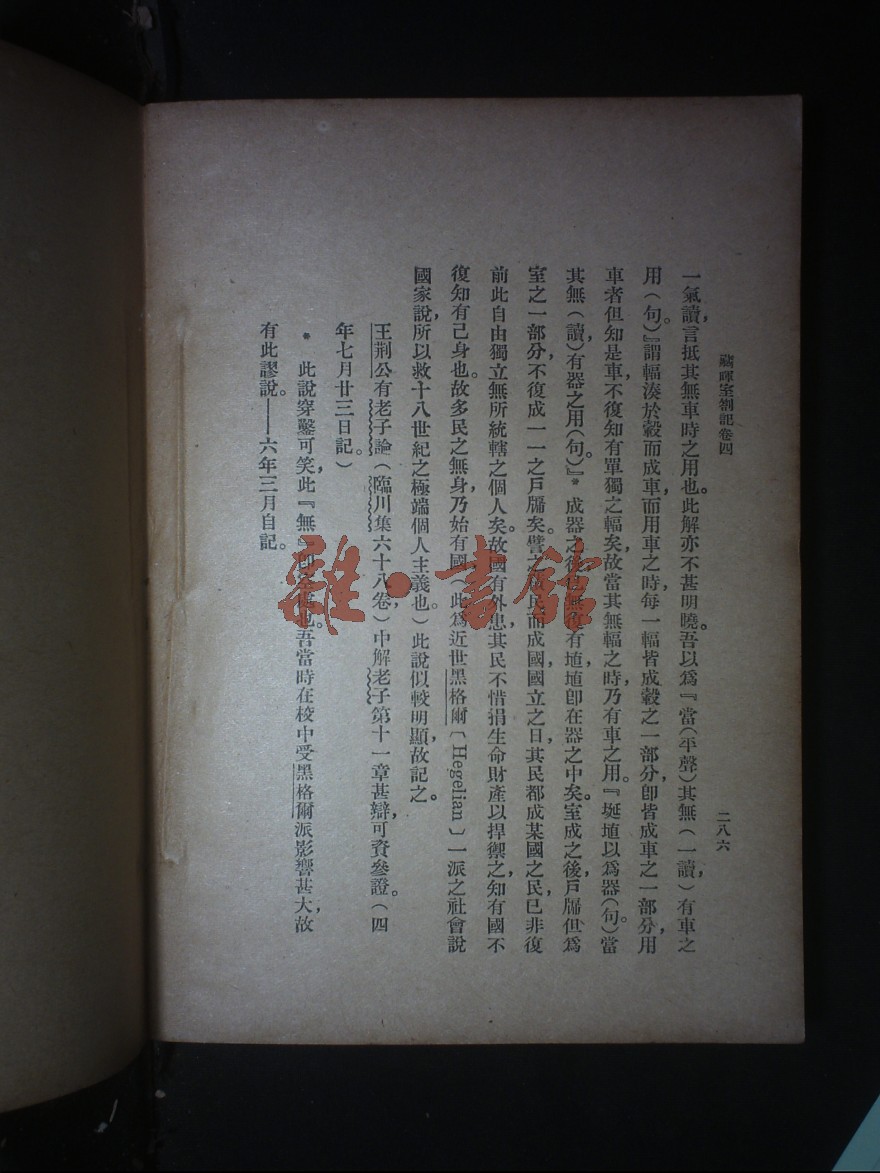 藏暉室劄記卷四
二八六
一氣讀，言抵其無車時之用也。此解亦不甚明曉。吾以爲『當(平聲)其無(一讀)，有車之
用(句)。』謂輻湊於轂而成車，而用車之時，每一輻皆成轂之一部分，卽皆成車之一部分，用
車者但知是車，不復知有單獨之輻矣，故當其無輻之時，乃有車之用。『埏埴以爲器(句)。當
其無(讀)，有器之用(句)。』* 成器之後，已無復有埴，埴卽在器之中矣。室成之後，戶牖但爲
室之一部分，不復成一一之戶牖矣。譬之 民而成國，國立之日，其民都成某國之民，已非復
前此自由獨立無所統轄之個人矣。故國有外患，其民不惜捐生命財產以捍禦之，知有國不
復知有己身也。故多民之無身，乃始有國。(此爲近世黑格爾〔Hegelian〕一派之社會說
國家說，所以救十八世紀之極端個人主義也。)此說似較明顯，故記之。
王荆公有老子論(臨川集六十八卷)，中解老子第十一章甚辯，可資參證。(四
年七月廿三日記。)
* 此說穿鑿可笑，此『無』卽空處也。吾當時在校中受黑格爾派影響甚大，故
有此謬說。——六年三月自記。
雜·書館